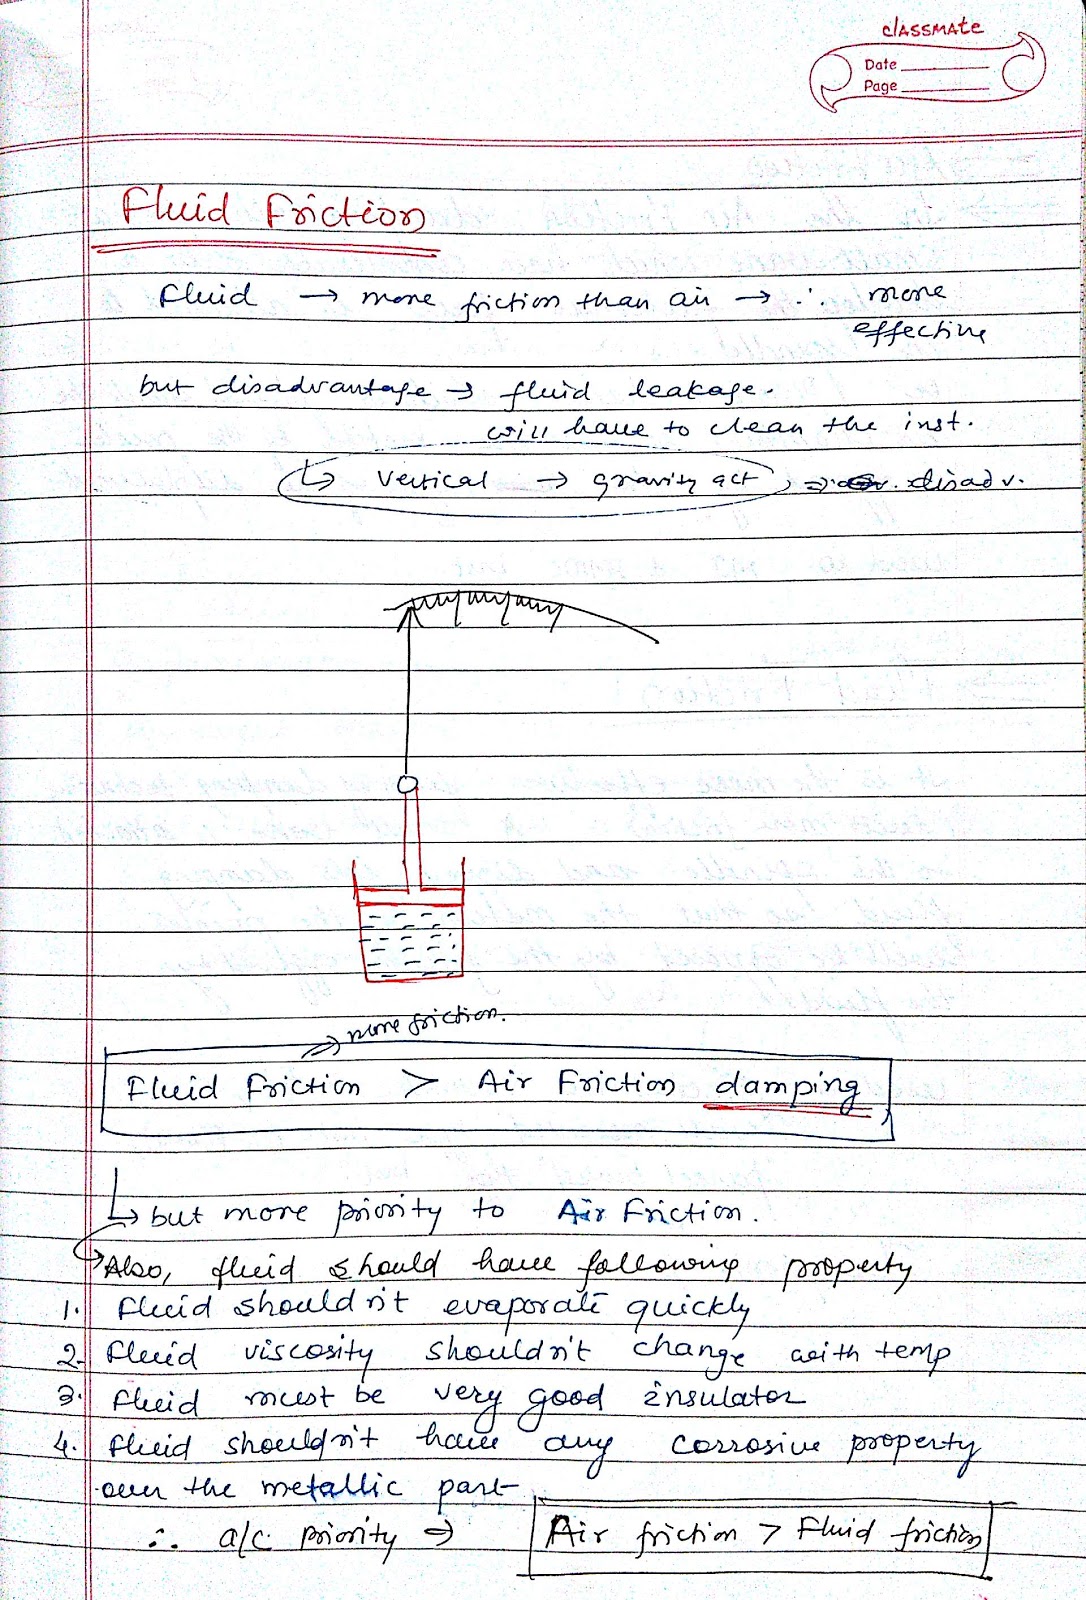 classmate
Date
Page
Fluid Friction
Fluid → more friction than air → ∴ more
effective
but disadvantage → fluid leakage.
will have to clean the inst.
↳ vertical → gravity act, ⇒ disadv.
more friction.
Fluid Friction > Air Friction damping
↳ but more priority to Air Friction.
Also, fluid should have following property
1. Fluid shouldn't evaporate quickly
2. Fluid viscosity shouldn't change with temp
3. Fluid must be very good insulator
4. Fluid shouldn't have any corrosive property
over the metallic part
∴ a/c priority ⇒ Air friction > Fluid friction